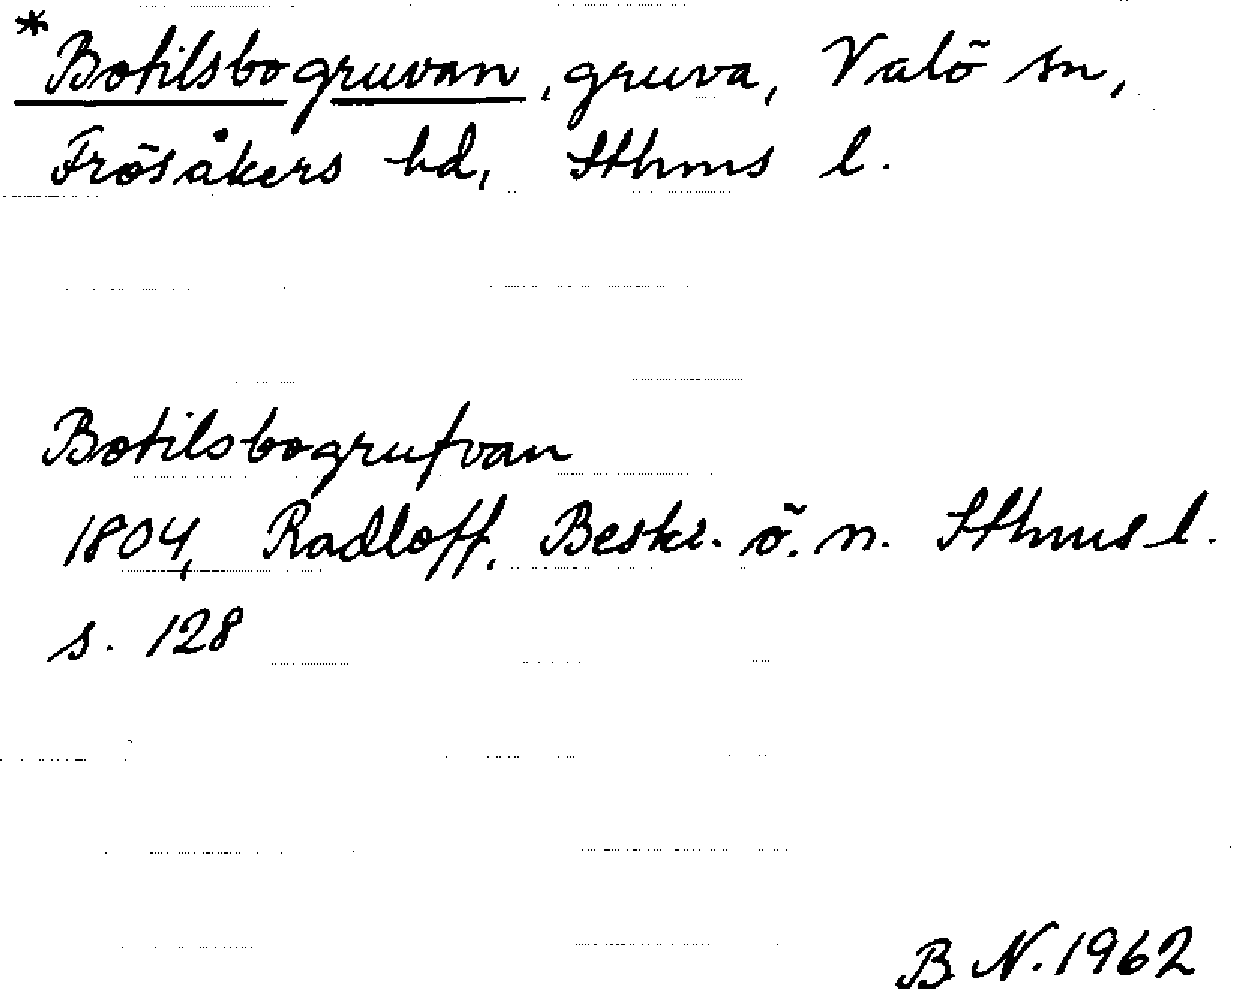 *Botilsbogruvan, gruva, Valö sn,
Frösåkers hd, Sthms l.
Botilsbogrufvan
1804, Radloff, Beskr. ö. n. Sthms l.
s. 128
B N. 1962